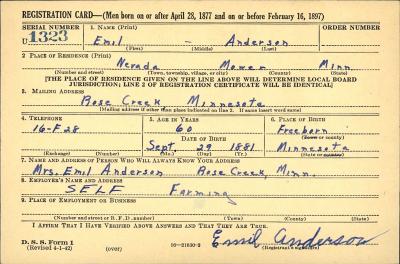 REGISTRATION CARD—(Men born on or after April 28, 1877 and on or before February 16, 1897)
SERIAL NUMBER 1. NAME (Print) ORDER NUMBER
U 1323 Emil Anderson
(First) (Middle) (Last)
2. PLACE OF RESIDENCE (Print)
Nevada Mower Minn.
(Number and street) (Town, township, village, or city) (County) (State)
[THE PLACE OF RESIDENCE GIVEN ON THE LINE ABOVE WILL DETERMINE LOCAL BOARD
JURISDICTION; LINE 2 OF REGISTRATION CERTIFICATE WILL BE IDENTICAL]
3. MAILING ADDRESS
Rose Creek Minnesota
[Mailing address if other than place indicated on line 2. If same insert word same]
4. TELEPHONE 5. AGE IN YEARS 6. PLACE OF BIRTH
16-F28 60 Freeborn
DATE OF BIRTH (Town or county)
Sept. 29 1881 Minnesota
(Exchange) (Number) (Mo.) (Day) (Yr.) (State or country)
7. NAME AND ADDRESS OF PERSON WHO WILL ALWAYS KNOW YOUR ADDRESS
Mrs. Emil Anderson Rose Creek, Minn.
8. EMPLOYER'S NAME AND ADDRESS
SELF Farming
9. PLACE OF EMPLOYMENT OR BUSINESS
(Number and street or R. F. D. number) (Town) (County) (State)
I AFFIRM THAT I HAVE VERIFIED ABOVE ANSWERS AND THAT THEY ARE TRUE.
D. S. S. Form 1 Emil Anderson
(Revised 4-1-42) (over) 16—21630-2 (Registrant's signature)